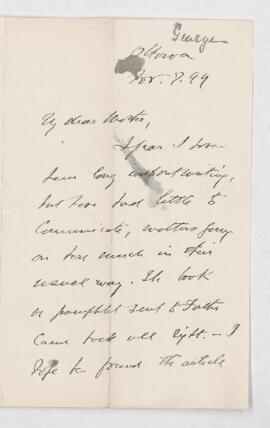 George
Ottawa
Nov. 7. 99
My dear
I fear I have
been long without writing,
but have had little to
Communicate, matters going
on here much in their
usual way. The book
or pamphlet sent to Father
Came back all right. - I
hope he found the article